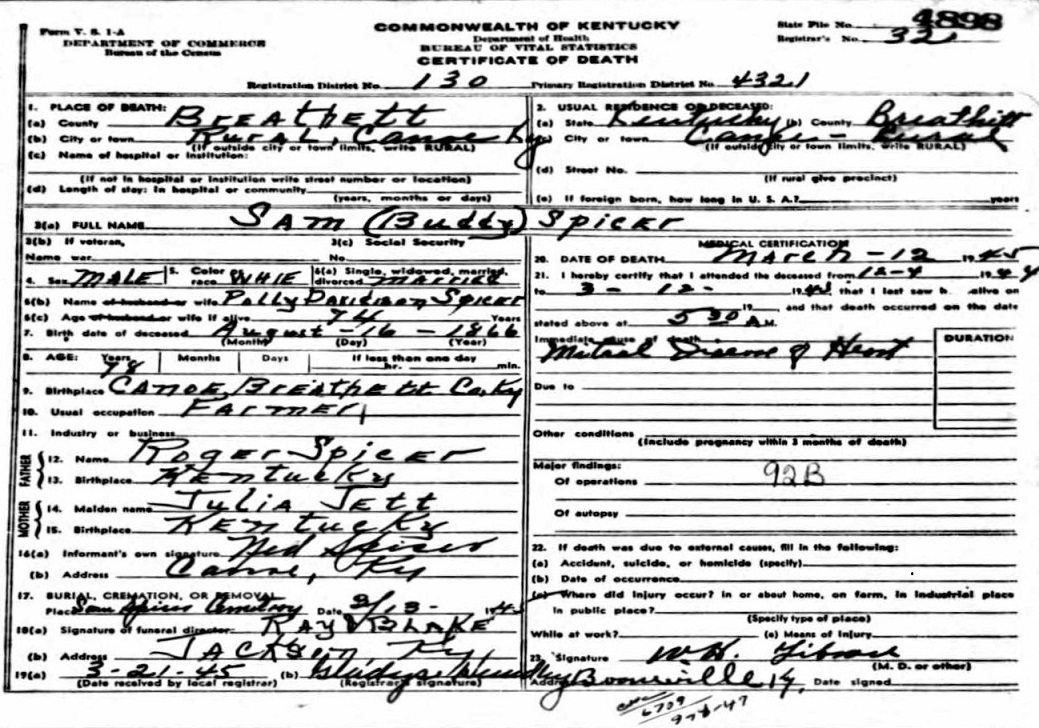 Form V. S. 1-A
DEPARTMENT OF COMMERCE
Bureau of the Census
COMMONWEALTH OF KENTUCKY
Department of Health
BUREAU OF VITAL STATISTICS
CERTIFICATE OF DEATH
State File No. 4898
Registrar's No. 321
Registration District No. 130 Primary Registration District No. 4321
1. PLACE OF DEATH:
(a) County BrEAthEtt
(b) City or town RurAL, Canoe Ky
(If outside city or town limits, write RURAL)
(c) Name of hospital or institution:
(If not in hospital or institution write street number or location)
(d) Length of stay: In hospital or community
(years, months or days)
2. USUAL RESIDENCE OF DECEASED:
(a) State Kentucky (b) County Breathitt
(c) City or town Canoe - Rural
(If outside city or town limits, write RURAL)
(d) Street No.
(If rural give precinct)
(e) If foreign born, how long in U. S. A.? years
3(a) FULL NAME SAM (Buddy) SpicEr
3(b) If veteran,
Name war
3(c) Social Security
No.
4. Sex MALE 5. Color race WHIE 6(a) Single, widowed, married, divorced MArriEd
6(b) Name of husband or wife Polly Davidson Spicer
6(c) Age of husband or wife if alive 74 Years
7. Birth date of deceased August - 16 - 1866
(Month) (Day) (Year)
8. AGE: Years 78 Months Days If less than one day
hr. min.
9. Birthplace CANOE, BrEAthEtt Co, Ky
10. Usual occupation FArmEr
11. Industry or business
FATHER
12. Name RogEr SpicEr
13. Birthplace KEntucky
MOTHER
14. Maiden name JuliA JEtt
15. Birthplace KEntucky
16(a) Informant's own signature Ned Spicer
(b) Address Canoe, Ky
17. BURIAL, CREMATION, OR REMOVAL
Place Sam Spicer Cemetery Date 3/13- 1945
18(a) Signature of funeral director RAY BLAKE
(b) Address JAckson Ky
19(a) 3-21-45 (b) Gladys
(Date received by local registrar) (Registrar's signature)
MEDICAL CERTIFICATION
20. DATE OF DEATH March - 12 1945
21. I hereby certify that I attended the deceased from 12-4 1944
to 3 - 12 - 1945, that I last saw h alive on
19 , and that death occurred on the date
stated above at 5 30 A M.
Immediate cause of death
Mitral Disease of Heart
DURATION
Due to
Other conditions
(Include pregnancy within 3 months of death)
Major findings:
Of operations 92B
Of autopsy
22. If death was due to external causes, fill in the following:
(a) Accident, suicide, or homicide (specify)
(b) Date of occurrence
(c) Where did injury occur? In or about home, on farm, in industrial place
in public place?
(Specify type of place)
While at work? (e) Means of Injury
23. Signature W.H.
(M. D. or other)
Address Booneville Ky. Date signed
6709